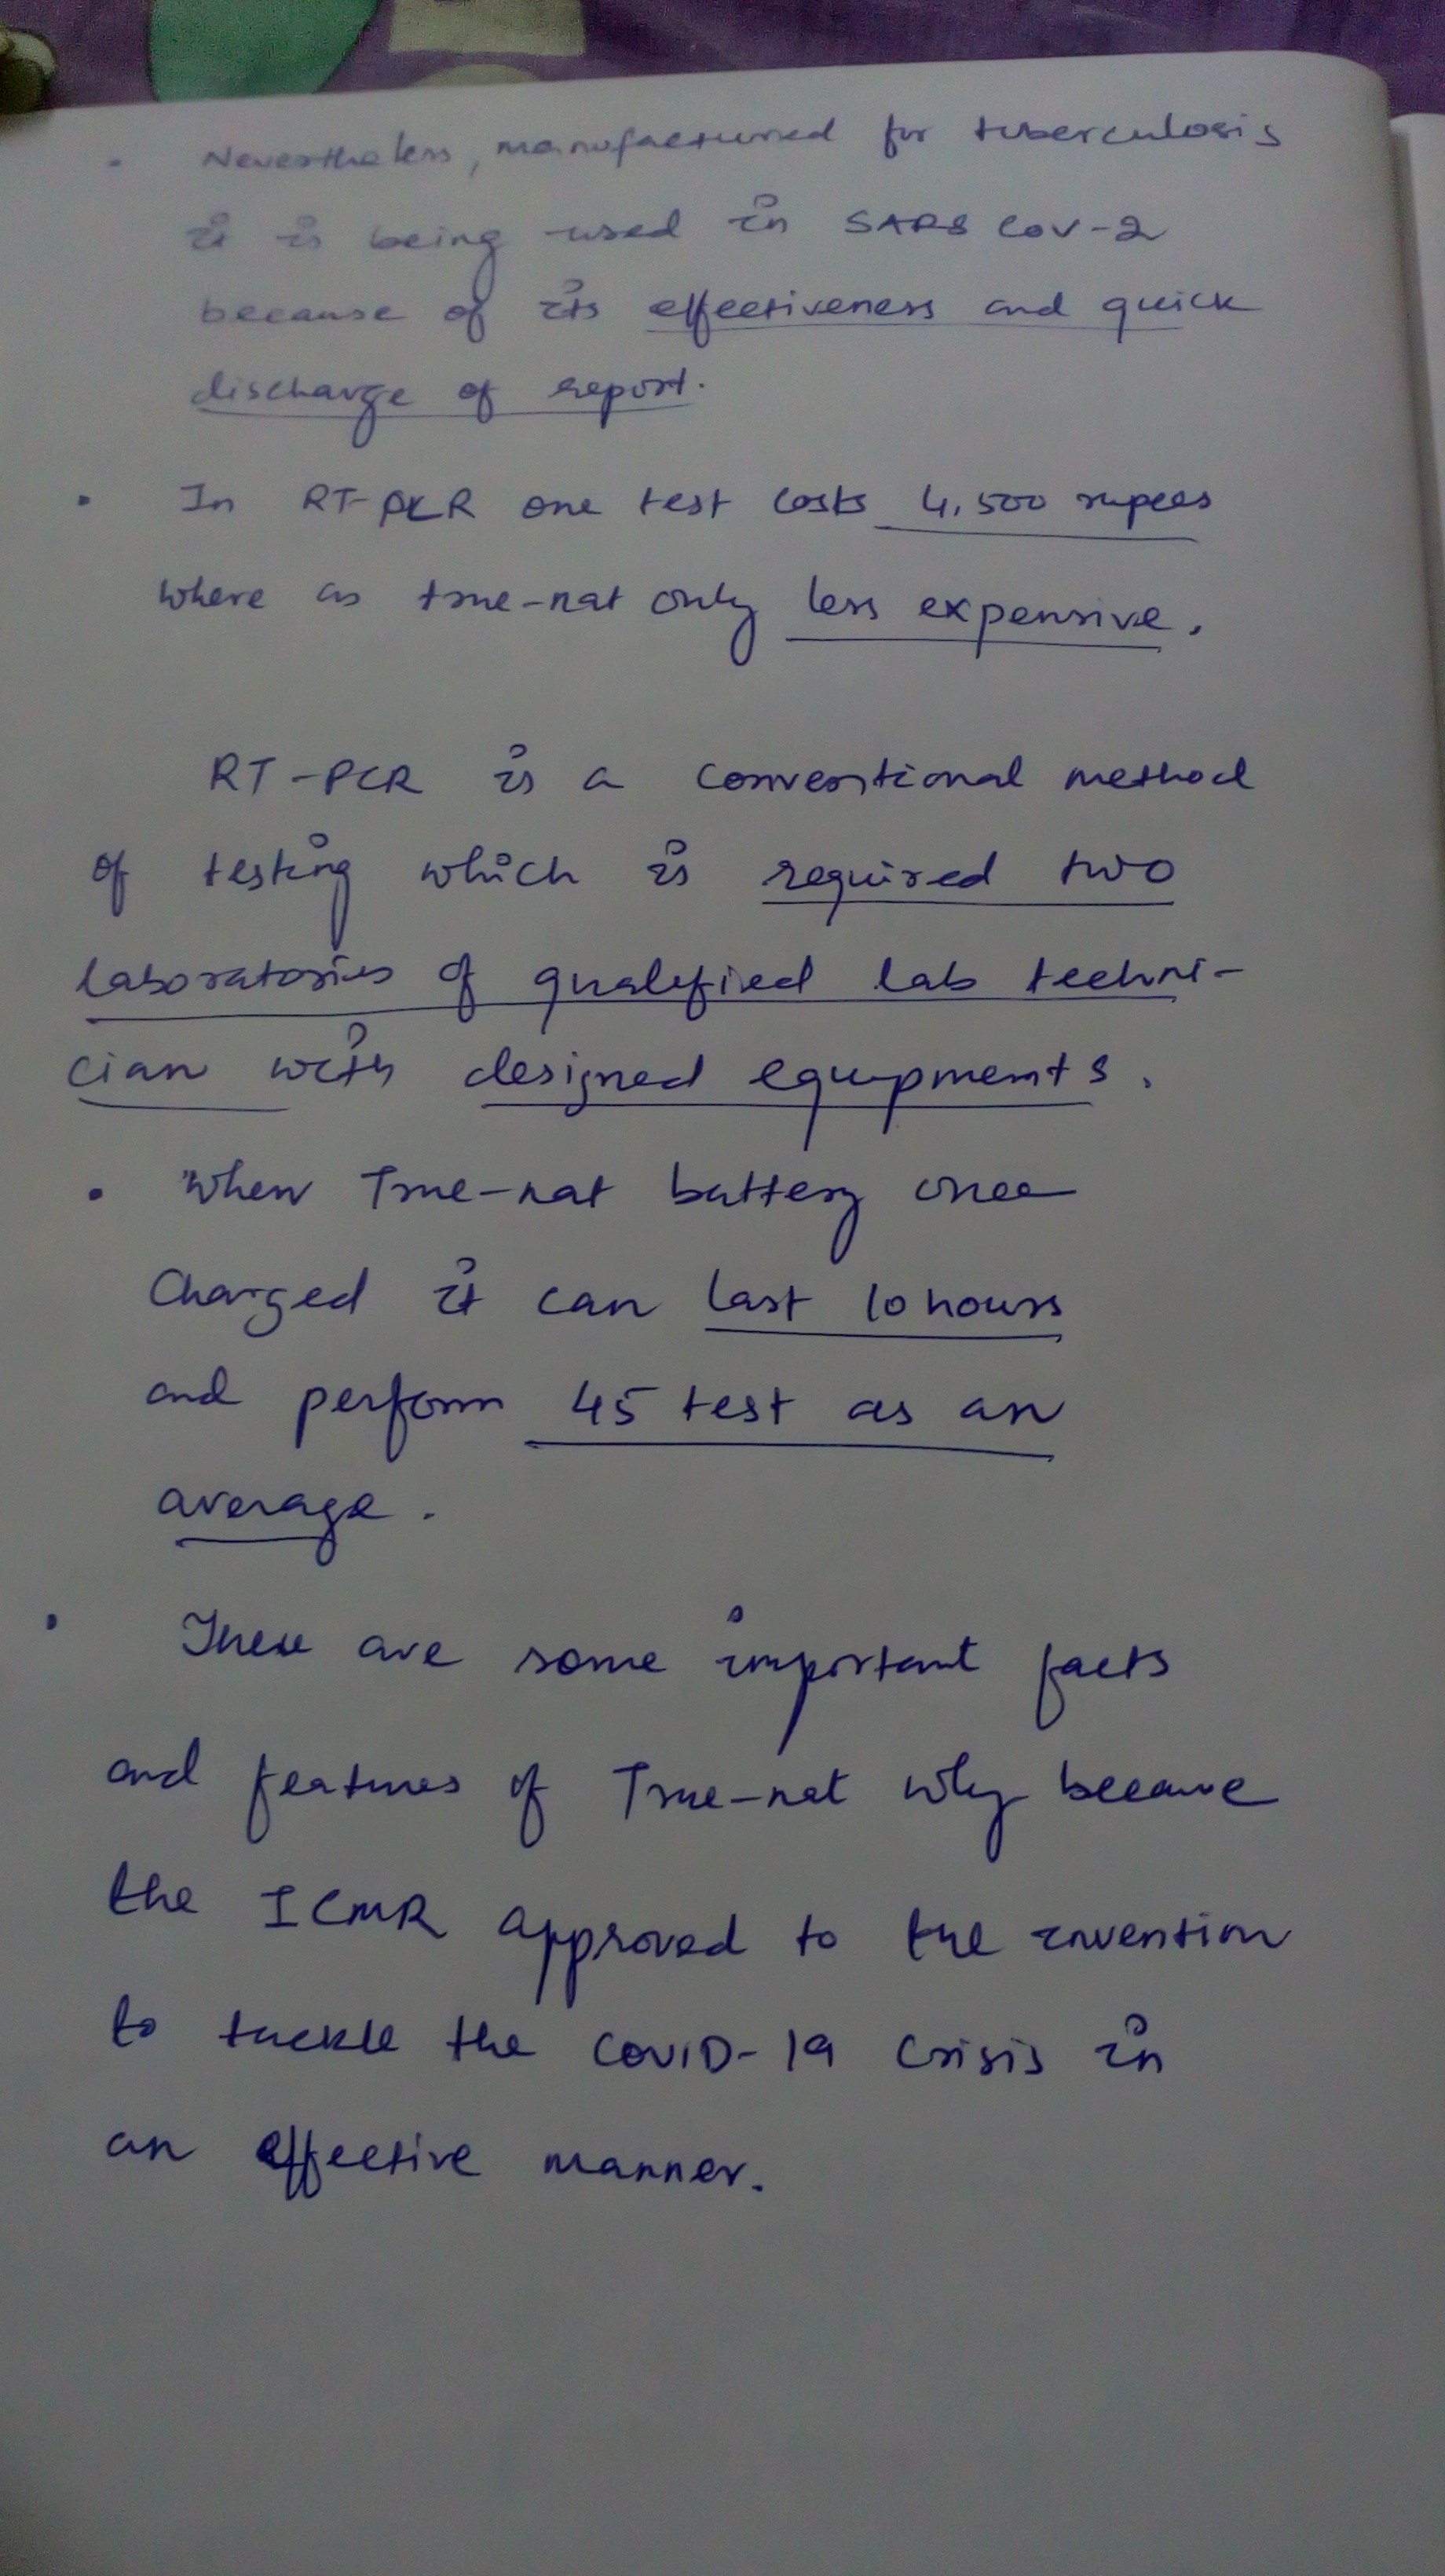 • Nevertheless, manufactured for tuberculosis
it is being used in SARS CoV-2
because of its effectiveness and quick
discharge of report.
• In RT-PCR one test costs 4,500 rupees
where as true-nat only less expensive.
RT-PCR is a conventional method
of testing which is required two
laboratories of qualified lab techni-
cian with designed equipments.
• When True-nat battery once
Charged it can last 10 hours
and perform 45 test as an
average.
• These are some important facts
and features of True-nat why because
the ICMR approved to the invention
to tackle the COVID-19 crisis in
an effective manner.